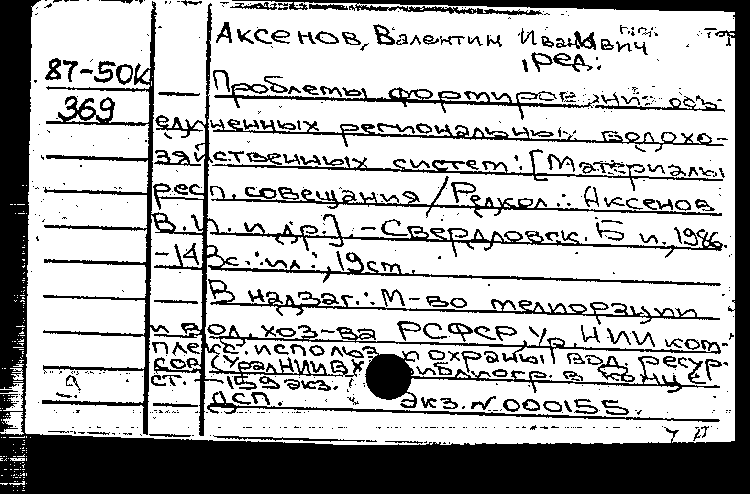 Аксенов, Валентин Иванович
, ред.:
87-50К
369
Проблемы формирования объ-
единенных региональных водохо-
зяйственных систем: [Материалы
респ. совещания / Редкол.: Аксенов
В.И. и др.]. - Свердловск. Б и., 1986.
- 143 с.: ил.; 19 см.
В надзаг.: М-во мелиорации
и вод. хоз-ва РСФСР, Ур. НИИ ком-
плекс. использ. и охраны вод. ресур-
сов (УралНИИВХ). Библиогр. в конце
ст. - 159 экз.
ДСП. Экз. N 000155.